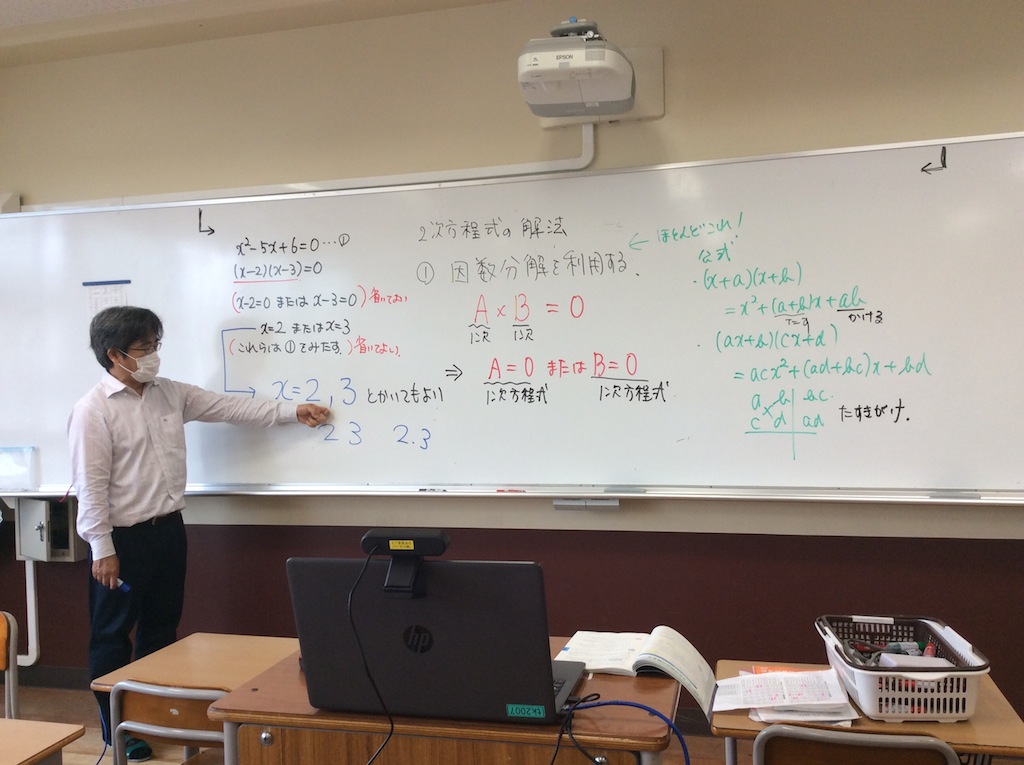 x²-5x+6=0…①
(x-2)(x-3)=0
(x-2=0 または x-3=0)省いてよい
x=2 または x=3
(これらは①をみたす。)省いてよい。
x=2,3 とかいてもよい
2 3 2.3
2次方程式の解法
① 因数分解を利用する.
A×B=0
1次 1次
⇒ A=0 または B=0
1次方程式 1次方程式
← ほとんどこれ!
公式
・(x+a)(x+b)
=x²+(a+b)x+ab
たす かける
・(ax+b)(cx+d)
=acx²+(ad+bc)x+bd
a b bc
c d ad
たすきがけ.
EPSON
hp
tk2007